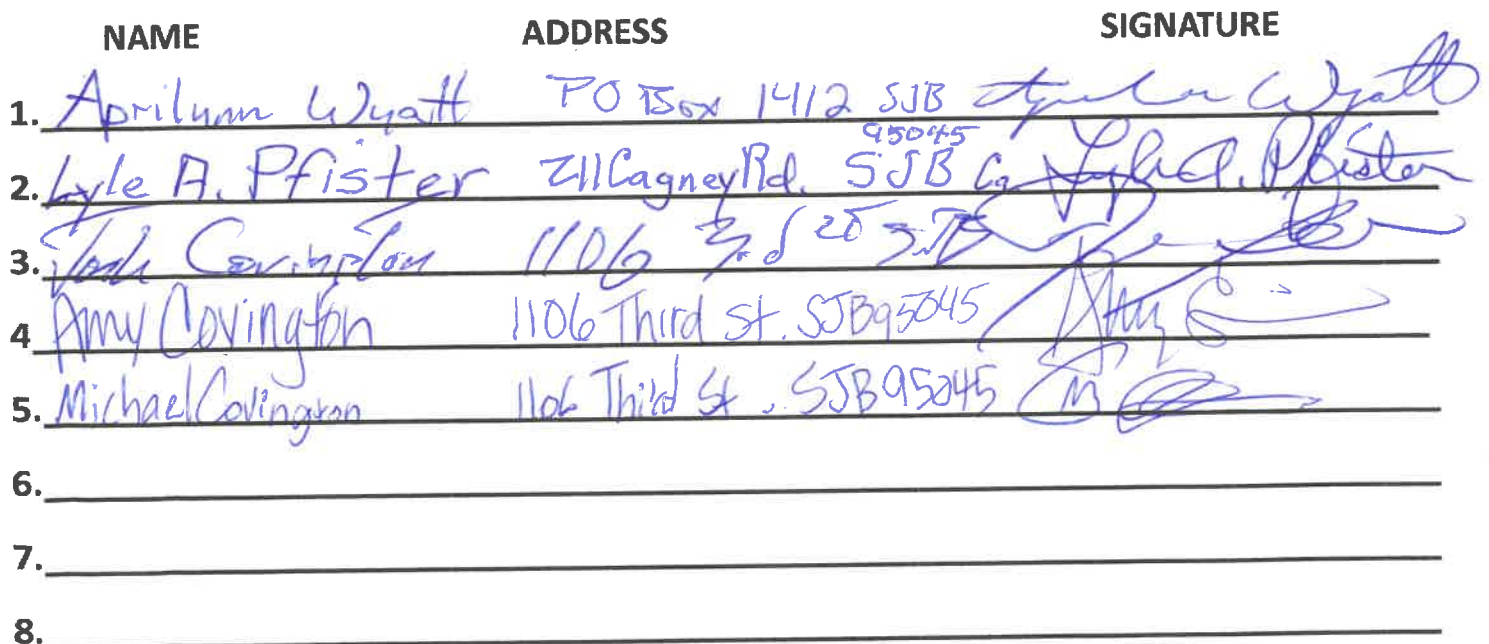 NAME ADDRESS SIGNATURE
1. Aprilynn Wyatt PO Box 1412 SJB Wyatt
95045
2. Lyle A. Pfister 211 Cagney Rd. SJB Ca Lyle A. Pfister
3. Covington 1106 3rd St SJB
4 Amy Covington 1106 Third St. SJB 95045 Amy
5. Michael Covington 1106 Third St. SJB 95045
6.
7.
8.